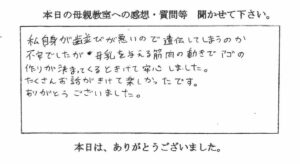 本日の母親教室への感想・質問等 聞かせて下さい。
私自身が歯並びが悪いので遺伝してしまうのか
不安でしたが母乳を与える筋肉の動きでアゴの
作りが決まってくるときけて安心しました。
たくさんお話がきけて楽しかったです。
ありがとうございました。
本日は、ありがとうございました。